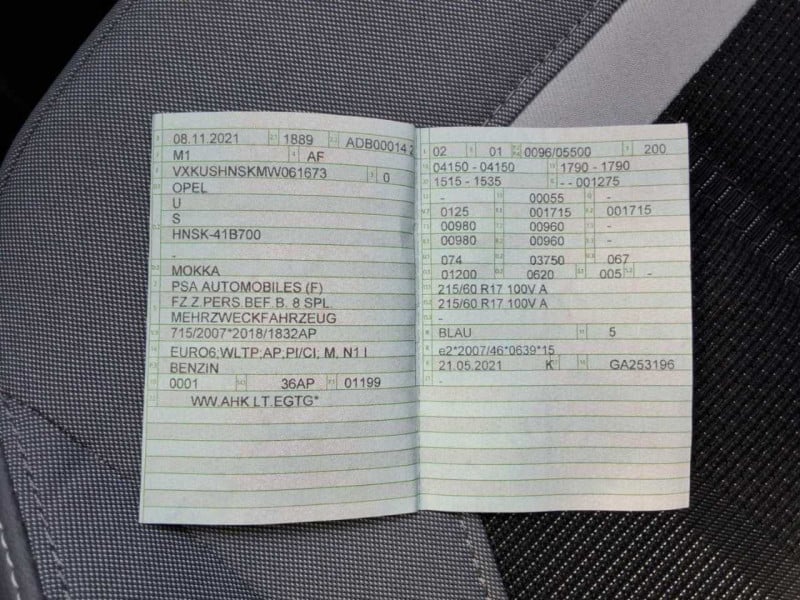 08.11.2021 1889 ADB00014 2
M1 AF
VXKUSHNSKMW061673 0
OPEL
U
S
HNSK-41B700
-
MOKKA
PSA AUTOMOBILES (F)
FZ.Z.PERS.BEF.B. 8 SPL.
MEHRZWECKFAHRZEUG
715/2007*2018/1832AP
EURO6;WLTP;AP,PI/CI; M, N1 I
BENZIN
0001 36AP 01199
WW.AHK LT.EGTG*
02 01 0096/05500 200
04150 - 04150 1790 - 1790
1515 - 1535 - - 001275
- 00055 -
0125 001715 001715
00980 00960 -
00980 00960 -
074 03750 067
01200 0620 005 -
215/60 R17 100V A
215/60 R17 100V A
-
BLAU 5
e2*2007/46*0639*15
21.05.2021 K GA253196
-